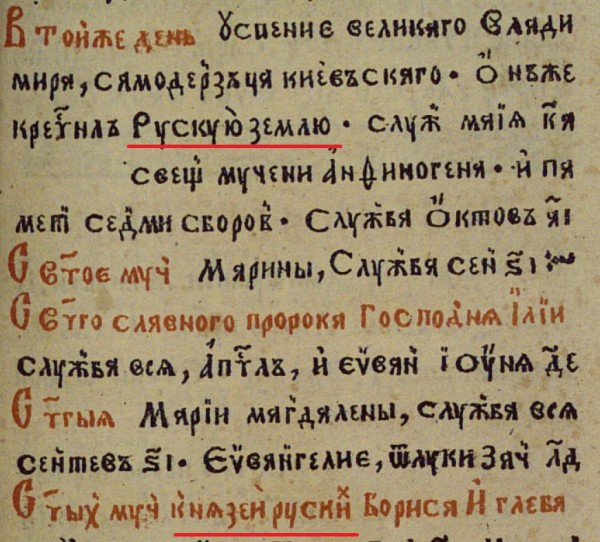 Втойже день Успение великаго Влади
мира, самодерзъца киевъскаго · Ѻ нъже
крестилъ Рускую землю · служ маіꙗ к҃а
свещ мучени Анѳиногена · и па
меті седми сборов · Служба Октовъ а҃і
Светое муч Марины, Служба сен ѕ҃і
Светго славного пророка Господнѧ Иліи
служба всѧ, Аптлъ, и еѵван іоунѧ д҃е
Стгыꙗ Маріи магдалены, служба всѧ
сентевъ ѕ҃і · Еѵвангелие, ѿлуки зач л҃д
Стых муч кнѧзей руских Бориса И глеба